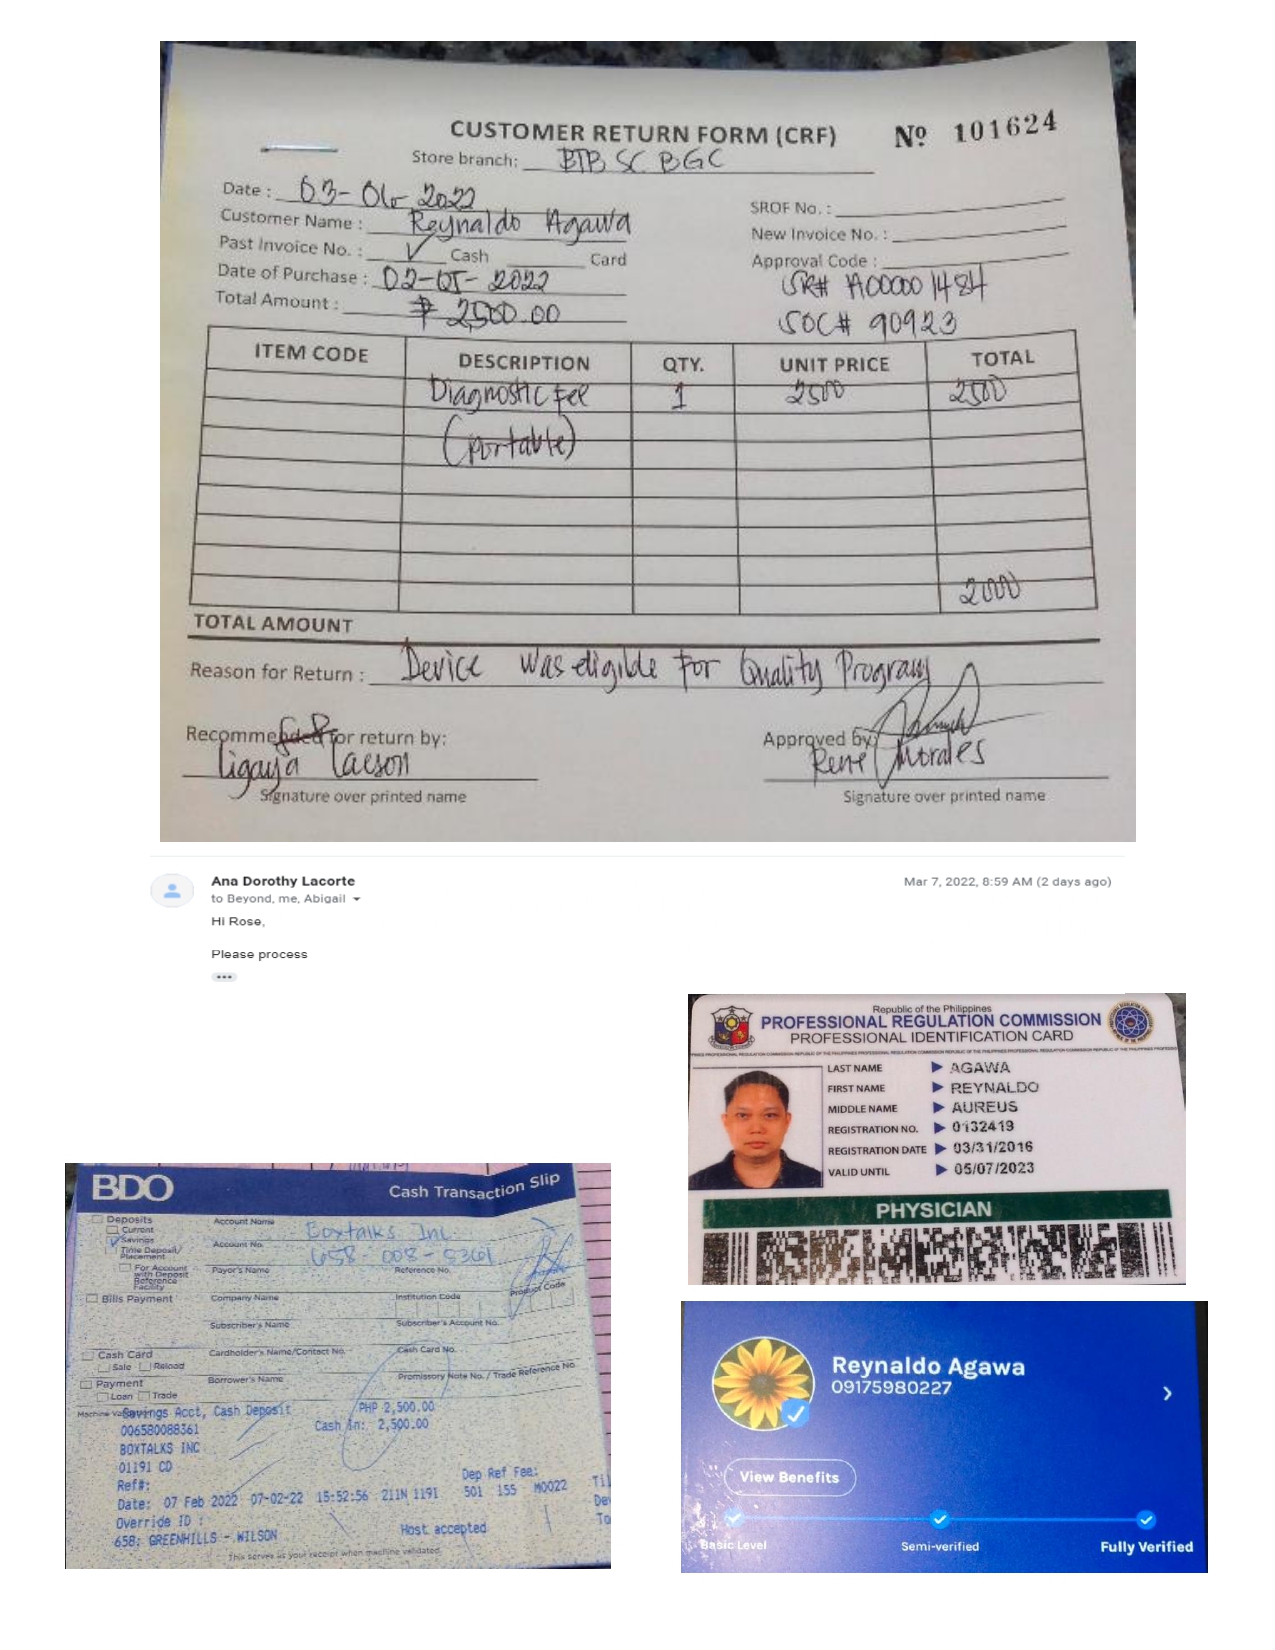 CUSTOMER RETURN FORM (CRF) Nº 101624
Store branch: BTB SC BGC
Date : 03-06-2022
Customer Name : Reynaldo Agawa
Past Invoice No. : ✓ Cash Card
Date of Purchase : 02-05-2022
Total Amount : ₱ 2,500.00
SROF No. :
New Invoice No. :
Approval Code :
SR# A000001484
SOC# 90923
ITEM CODE DESCRIPTION QTY. UNIT PRICE TOTAL
Diagnostic Fee 1 2500 2500
(portable)
2000
TOTAL AMOUNT
Reason for Return : Device was eligible for Quality Program
Recommended for return by:
Ligaya Lacson
Signature over printed name
Approved by:
Rene Morales
Signature over printed name
Ana Dorothy Lacorte
Mar 7, 2022, 8:59 AM (2 days ago)
to Beyond, me, Abigail
Hi Rose,
Please process
Republic of the Philippines
PROFESSIONAL REGULATION COMMISSION
PROFESSIONAL IDENTIFICATION CARD
LAST NAME AGAWA
FIRST NAME REYNALDO
MIDDLE NAME AUREUS
REGISTRATION NO. 0132419
REGISTRATION DATE 03/31/2016
VALID UNTIL 05/07/2023
PHYSICIAN
BDO Cash Transaction Slip
Deposits
Current
Savings
Time Deposit/
Placement
For Account
with Deposit
Reference
Facility
Bills Payment
Cash Card
Sale Reload
Payment
Loan Trade
Account Name Boxtalks Inc
Account No. 658-008-8361
Payor's Name Reference No.
Product Code
Company Name Institution Code
Subscriber's Name Subscriber's Account No.
Cardholder's Name/Contact No. Cash Card No.
Borrower's Name Promissory Note No. / Trade Reference No.
Savings Acct, Cash Deposit PHP 2,500.00
006580088361 Cash In: 2,500.00
BOXTALKS INC
01191 CD
Ref#: Dep Ref Fee:
Date: 07 Feb 2022 07-02-22 15:52:56 211N 1191 501 155 M0022
Override ID :
658: GREENHILLS - WILSON Host accepted
This serves as your receipt when machine validated.
Reynaldo Agawa
09175980227
View Benefits
Basic Level Semi-verified Fully Verified